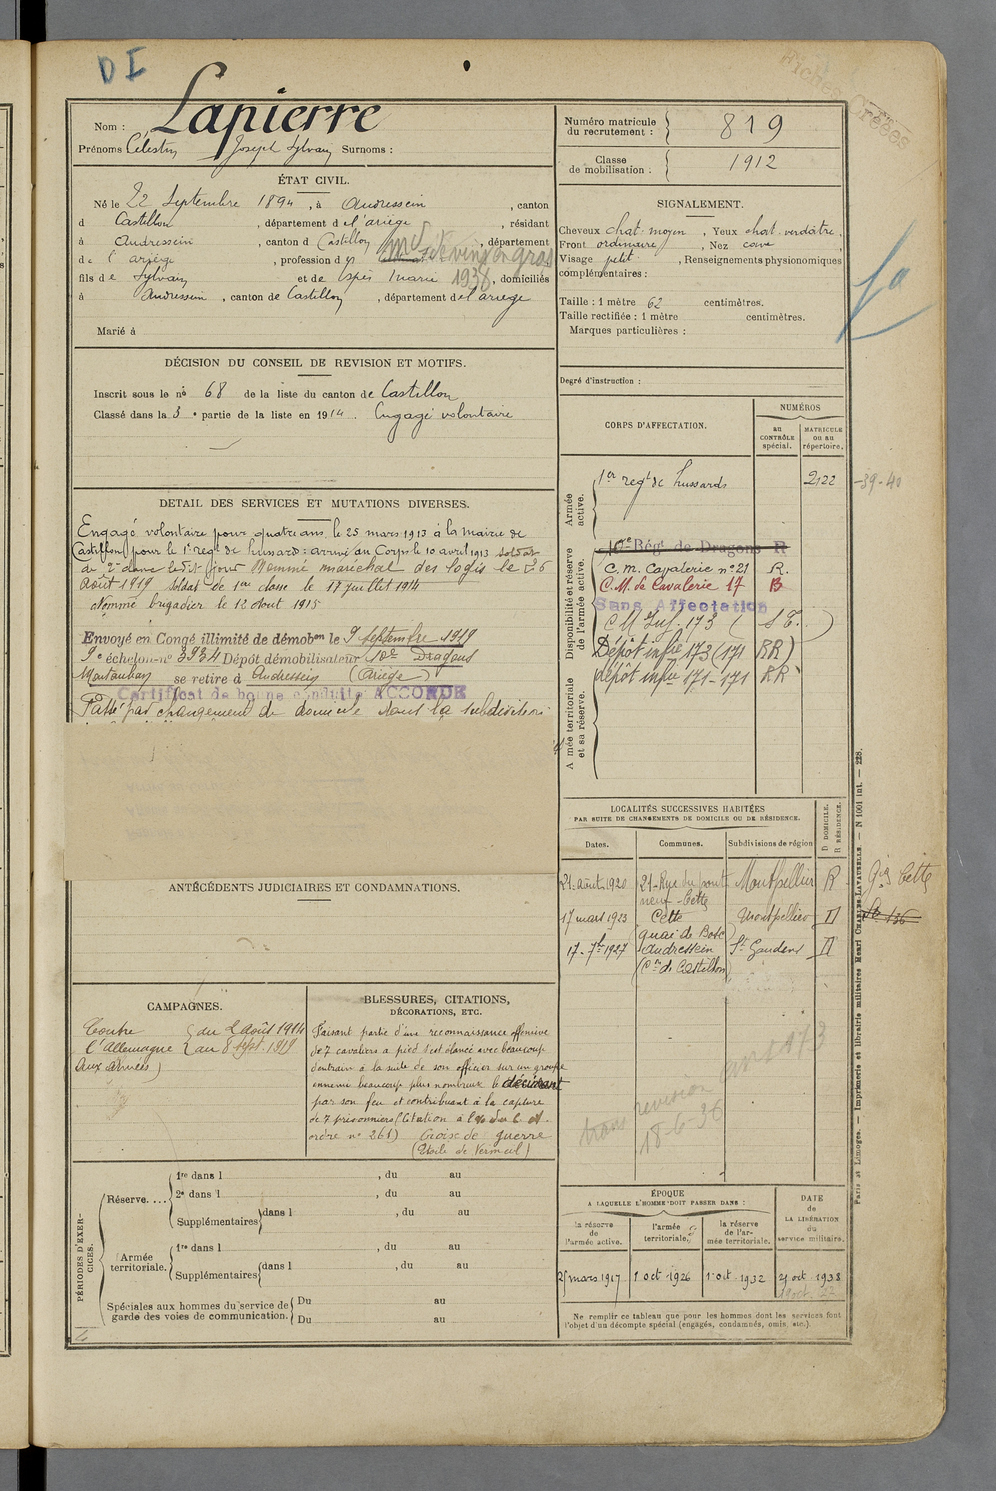 D I
Fiches Créées
Nom : Lapierre
Prénoms Célestin Joseph Sylvain Surnoms :
Numéro matricule du recrutement : 819
Classe de mobilisation : 1912
ÉTAT CIVIL.
Né le 22 Septembre 1894, à Audressein, canton
d Castillon, département de l'ariège, résidant
à Audressein, canton d Castillon, département
de l'ariège, profession d md de vins en gros
fils de Sylvain et de Espès Marie 1938, domiciliés
à Audressein, canton de Castillon, département de l'ariège
Marié à
SIGNALEMENT.
Cheveux chat. moyen, Yeux chat. verdâtre,
Front ordinaire, Nez cave
Visage petit, Renseignements physionomiques
complémentaires :
Taille : 1 mètre 62 centimètres.
Taille rectifiée : 1 mètre centimètres.
Marques particulières :
Degré d'instruction :
DÉCISION DU CONSEIL DE REVISION ET MOTIFS.
Inscrit sous le no 68 de la liste du canton de Castillon
Classé dans la 3e partie de la liste en 1914. Engagé volontaire
DETAIL DES SERVICES ET MUTATIONS DIVERSES.
Engagé volontaire pour quatre ans, le 25 mars 1913 à la Mairie de
Castillon pour le 1er regt de hussard : arrivé au Corps le 10 avril 1913 soldat
de 2e classe ledit jour Nommé maréchal des logis le 26
Août 1919 Soldat de 1ère classe le 17 juillet 1914
Nommé brigadier le 12 Aout 1915
Envoyé en Congé illimité de démobon le 9 septembre 1919
9e échelon no 3934 Dépôt démobilisateur 10e Dragons
Montauban se retire à Audressein (Ariège)
Certificat de bonne conduite ACCORDÉ
Passé par changement de domicile dans la subdivision
CORPS D'AFFECTATION.
NUMÉROS
au CONTRÔLE spécial.
MATRICULE ou au répertoire.
Armée active.
1er regt de hussards 2122
-39-40
Disponibilité et réserve de l'armée active.
10e Régt de Dragons R
C. M. Cavalerie no 21 R.
C.M. de Cavalerie 17 B
Sans Affectation
C M Inf. 173 (S E.)
Dépôt infie 173 (171 RR)
dépôt infie 171-171 RR
Armée territoriale et sa réserve.
LOCALITÉS SUCCESSIVES HABITÉES
PAR SUITE DE CHANGEMENTS DE DOMICILE OU DE RÉSIDENCE.
Dates. Communes. Subdivisions de région
D DOMICILE. R RÉSIDENCE.
21-août 1920 21-Rue du pont neuf-Cette Montpellier R
Cette
17 mars 1923 Cette quai de Bosc Montpellier D
17-7bre 1927 Audressein (Con de Castillon) St Gaudens D
trans revision
18-6-36
ANTÉCÉDENTS JUDICIAIRES ET CONDAMNATIONS.
CAMPAGNES.
Contre l'Allemagne (aux armées)
du 2 août 1914
au 8 sept. 1919
BLESSURES, CITATIONS,
DÉCORATIONS, ETC.
Faisant partie d'une reconnaissance offensive
de 7 cavaliers à pied s'est élancé avec beaucoup
d'entrain à la suite de son officier sur un groupe
ennemi beaucoup plus nombreux le décimant
par son feu et contribuant à la capture
de 7 prisonniers (Citation à l'o/ du C. A.
ordre no 261) Croix de guerre
(Etoile de Vermeil)
PÉRIODES D'EXERCICES.
Réserve....
1re dans l , du au
2e dans l , du au
Supplémentaires dans l , du au
Armée territoriale.
1re dans l , du au
Supplémentaires dans l , du au
Spéciales aux hommes du service de garde des voies de communication.
Du au
Du au
ÉPOQUE
A LAQUELLE L'HOMME DOIT PASSER DANS :
la réserve de l'armée active.
l'armée territoriale.
la réserve de l'armée territoriale.
DATE de LA LIBÉRATION du service militaire.
25 mars 1917 1 oct 1926 1 oct 1932 21 oct 1938
Ne remplir ce tableau que pour les hommes dont les services font
l'objet d'un décompte spécial (engagés, condamnés, omis, etc.).
Paris et Limoges. — Imprimerie et librairie militaires Henri CHARLES-LAVAUZELLE. — N 1001 int. — 228.